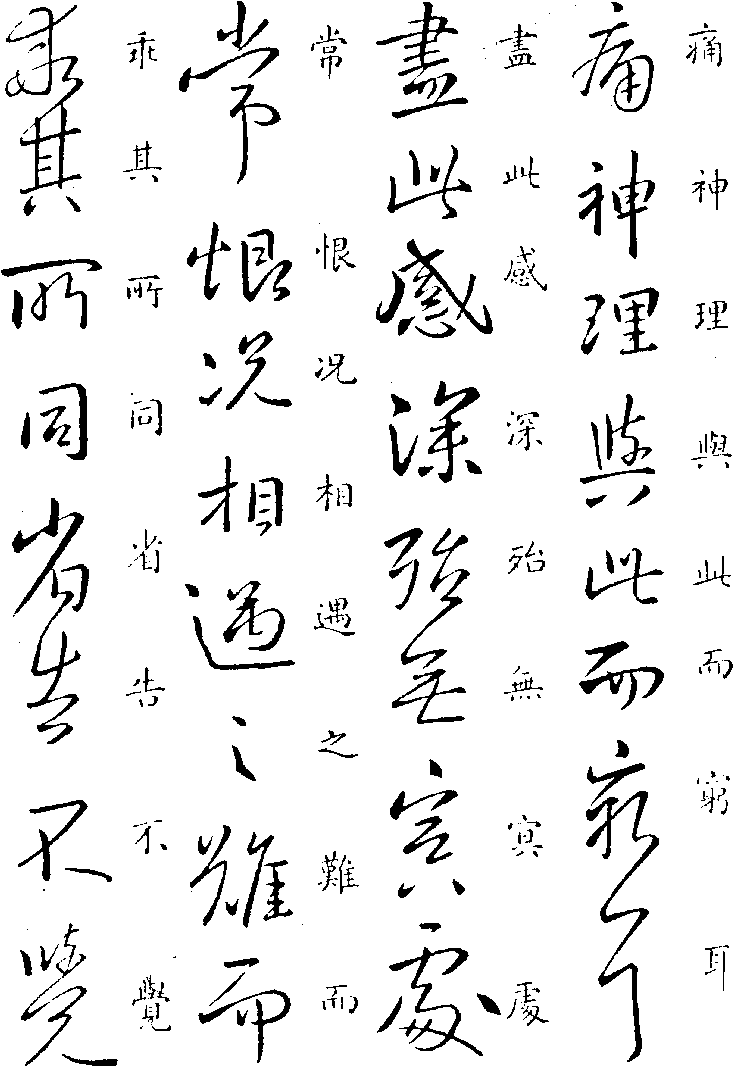 痛神理與此而窮耳
痛神理與此而窮耳
盡此感深殆無冥處
盡此感深殆無冥處
常恨况相遇之難而
常恨况相遇之難而
乖其所同省告不覺
乖其所同省告不覺